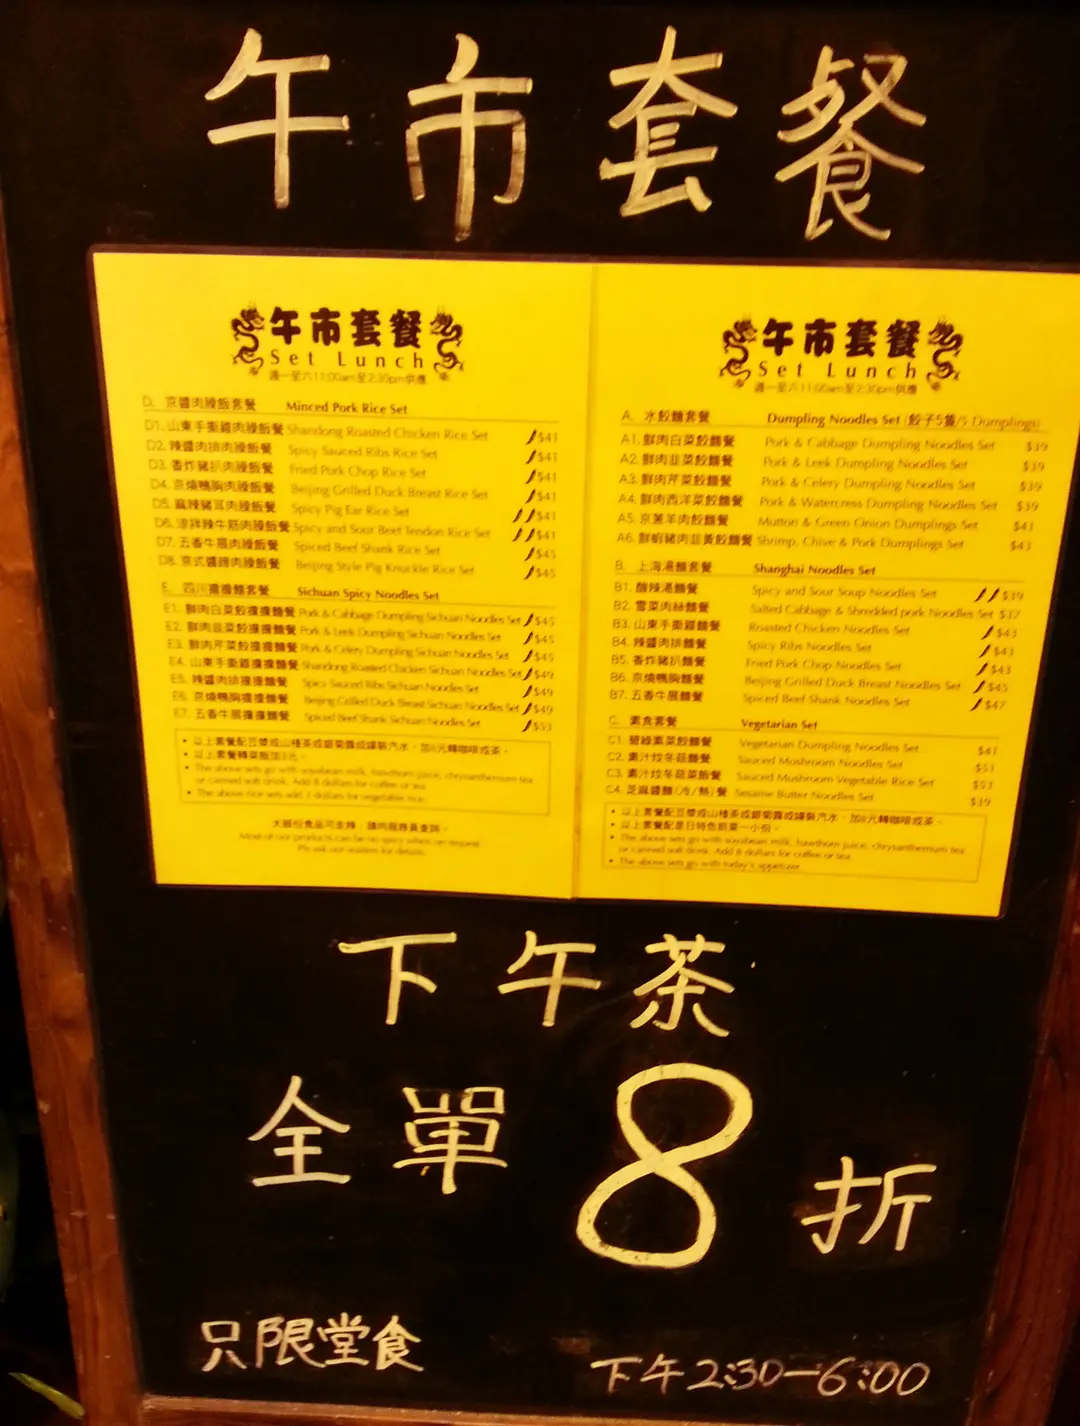 午市套餐
午市套餐
Set Lunch
週一至六11:00am至2:30pm供應
D. 京醬肉臊飯套餐 Minced Pork Rice Set
D1. 山東手撕雞肉臊飯餐 Shandong Roasted Chicken Rice Set $41
D2. 辣醬肉排肉臊飯餐 Spicy Sauced Ribs Rice Set $41
D3. 香炸豬扒肉臊飯餐 Fried Pork Chop Rice Set $41
D4. 京燒鴨胸肉臊飯餐 Beijing Grilled Duck Breast Rice Set $41
D5. 麻辣豬耳肉臊飯餐 Spicy Pig Ear Rice Set $41
D6. 涼拌辣牛筋肉臊飯餐 Spicy and Sour Beef Tendon Rice Set $41
D7. 五香牛展肉臊飯餐 Spiced Beef Shank Rice Set $45
D8. 京式醬蹄肉臊飯餐 Beijing Style Pig Knuckle Rice Set $45
E. 四川擔擔麵套餐 Sichuan Spicy Noodles Set
E1. 鮮肉白菜餃擔擔麵餐 Pork & Cabbage Dumpling Sichuan Noodles Set $45
E2. 鮮肉韮菜餃擔擔麵餐 Pork & Leek Dumpling Sichuan Noodles Set $45
E3. 鮮肉芹菜餃擔擔麵餐 Pork & Celery Dumpling Sichuan Noodles Set $45
E4. 山東手撕雞擔擔麵餐 Shandong Roasted Chicken Sichuan Noodles Set $49
E5. 辣醬肉排擔擔麵餐 Spicy Sauced Ribs Sichuan Noodles Set $49
E6. 京燒鴨胸擔擔麵餐 Beijing Grilled Duck Breast Sichuan Noodles Set $49
E7. 五香牛展擔擔麵餐 Spiced Beef Shank Sichuan Noodles Set $53
• 以上套餐配豆漿或山楂茶或銀菊露或罐裝汽水,加8元轉咖啡或茶。
• 以上套餐轉菜飯加3元。
• The above sets go with soyabean milk, hawthorn juice, chrysanthemum tea
or canned soft drink. Add 8 dollars for coffee or tea.
• The above rice sets add 3 dollars for vegetable rice.
大部份食品可走辣,請向服務員查詢。
Most of our products can be no spicy when on request.
Pls ask our waiters for details.
午市套餐
Set Lunch
週一至六11:00am至2:30pm供應
A. 水餃麵套餐 Dumpling Noodles Set (餃子5隻/5 Dumplings)
A1. 鮮肉白菜餃麵餐 Pork & Cabbage Dumpling Noodles Set $39
A2. 鮮肉韮菜餃麵餐 Pork & Leek Dumpling Noodles Set $39
A3. 鮮肉芹菜餃麵餐 Pork & Celery Dumpling Noodles Set $39
A4. 鮮肉西洋菜餃麵餐 Pork & Watercress Dumpling Noodles Set $39
A5. 京蔥羊肉餃麵餐 Mutton & Green Onion Dumplings Set $43
A6. 鮮蝦豬肉韮黃餃麵餐 Shrimp, Chive & Pork Dumplings Set $43
B. 上海湯麵套餐 Shanghai Noodles Set
B1. 酸辣湯麵餐 Spicy and Sour Soup Noodles Set $39
B2. 雪菜肉絲麵餐 Salted Cabbage & Shredded pork Noodles Set $37
B3. 山東手撕雞麵餐 Roasted Chicken Noodles Set $43
B4. 辣醬肉排麵餐 Spicy Ribs Noodles Set $43
B5. 香炸豬扒麵餐 Fried Pork Chop Noodles Set $43
B6. 京燒鴨胸麵餐 Beijing Grilled Duck Breast Noodles Set $45
B7. 五香牛展麵餐 Spiced Beef Shank Noodles Set $47
C. 素食套餐 Vegetarian Set
C1. 碧綠素菜餃麵餐 Vegetarian Dumpling Noodles Set $41
C2. 素汁炆冬菇麵餐 Sauced Mushroom Noodles Set $51
C3. 素汁炆冬菇菜飯餐 Sauced Mushroom Vegetable Rice Set $53
C4. 芝麻醬麵(冷/熱)餐 Sesame Butter Noodles Set $39
• 以上套餐配豆漿或山楂茶或銀菊露或罐裝汽水,加8元轉咖啡或茶。
• 以上套餐配是日特色前菜一小份。
• The above sets go with soyabean milk, hawthorn juice, chrysanthemum tea
or canned soft drink. Add 8 dollars for coffee or tea.
• The above sets go with today's appetizer.
下午茶
全單8折
只限堂食
下午2:30-6:00